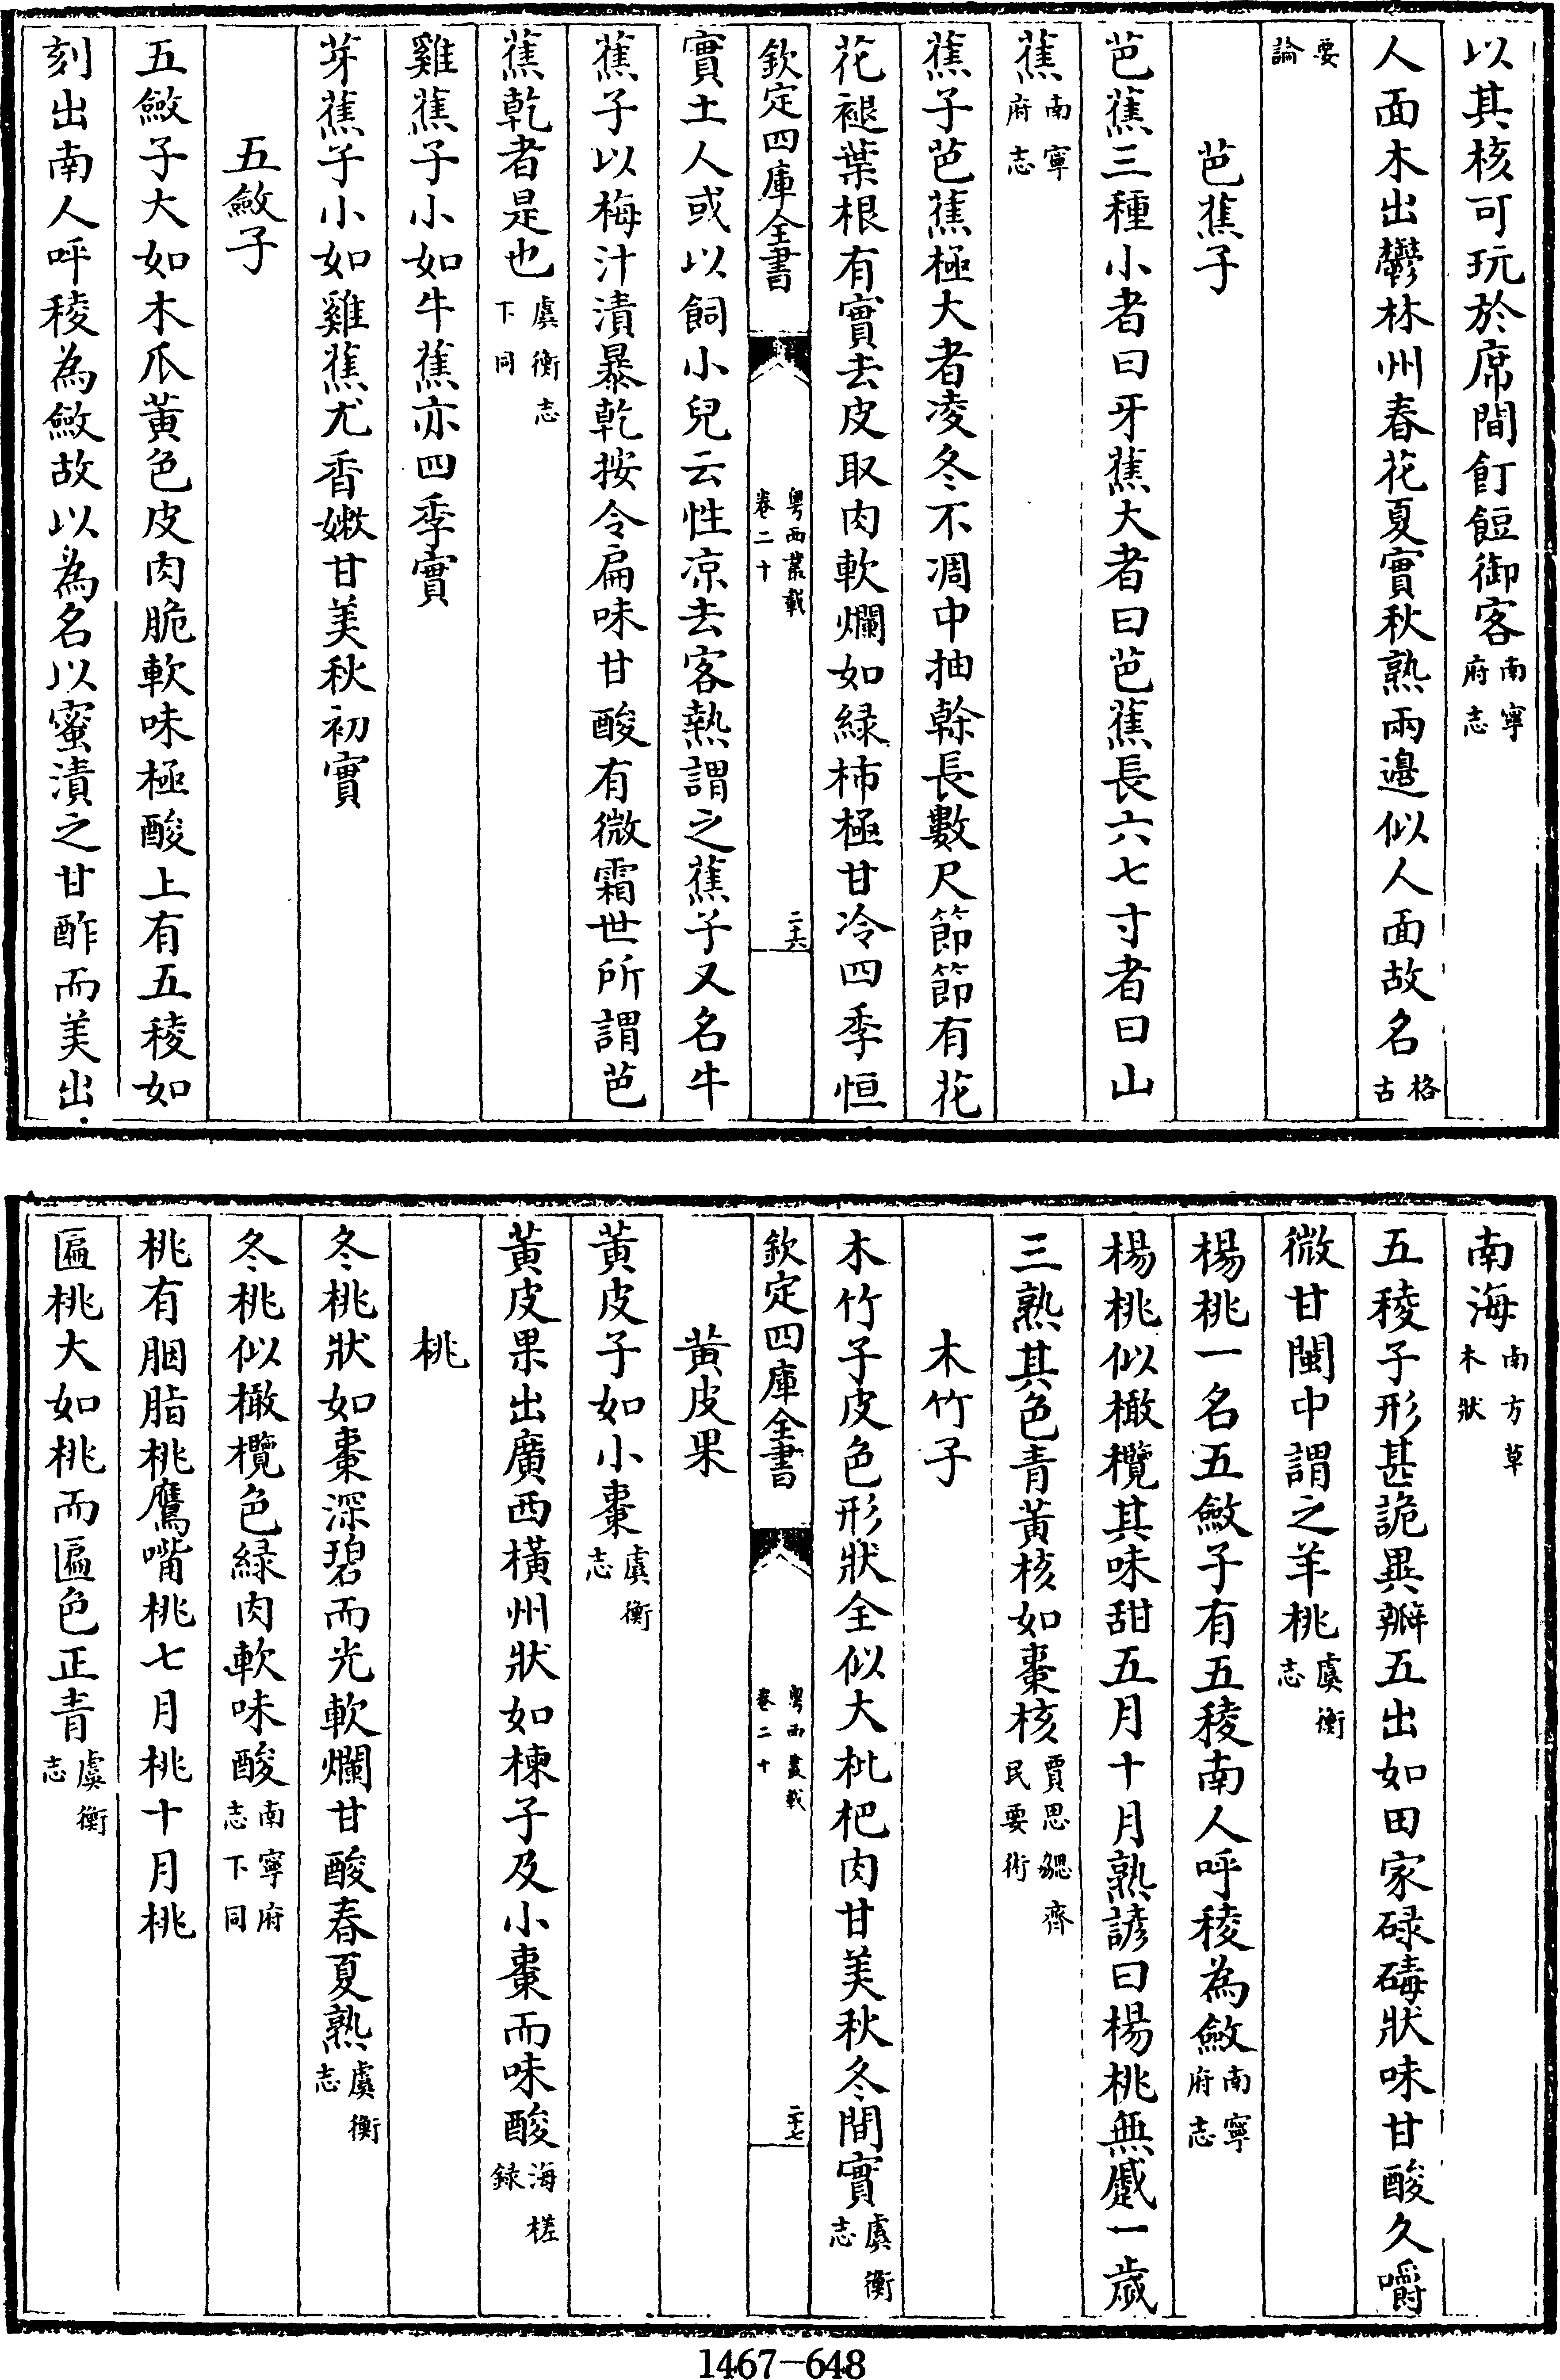 以其核可玩於席間飣餖御客南寧府志
人面木出鬱林州春花夏實秋熟兩邉似人面故名格古
要論
芭蕉子
芭蕉三種小者曰牙蕉大者曰芭蕉長六七寸者曰山
蕉南寧府志
蕉子芭蕉極大者凌冬不凋中抽榦長數尺節節有花
花褪葉根有實去皮取肉軟爛如緑柿極甘冷四季恒
欽定四庫全書
粤西叢載
卷二十
二十六
實土人或以飼小兒云性凉去客熱謂之蕉子又名牛
蕉子以梅汁漬暴乾按令扁味甘酸有微霜世所謂芭
蕉乾者是也虞衡志下同
雞蕉子小如牛蕉亦四季實
芽蕉子小如雞蕉尤香嫩甘美秋初實
五歛子
五歛子大如木瓜黄色皮肉脆軟味極酸上有五稜如
刻出南人呼稜為歛故以為名以蜜漬之甘酢而美出
南海南方草木狀
五稜子形甚詭異瓣五出如田家碌碡狀味甘酸久嚼
微甘閩中謂之羊桃虞衡志
楊桃一名五歛子有五稜南人呼稜為歛南寧府志
楊桃似橄欖其味甜五月十月熟諺曰楊桃無蹙一歲
三熟其色青黄核如棗核賈思勰齊民要術
木竹子
木竹子皮色形狀全似大枇杷肉甘美秋冬間實虞衡志
欽定四庫全書
粤西叢載
卷二十
二十七
黄皮果
黄皮子如小棗虞衡志
黄皮果出廣西横州狀如楝子及小棗而味酸海槎録
桃
冬桃狀如棗深碧而光軟爛甘酸春夏熟虞衡志
冬桃似橄欖色緑肉軟味酸南寧府志下同
桃有胭脂桃鷹嘴桃七月桃十月桃
匾桃大如桃而匾色正青虞衡志
1467-648